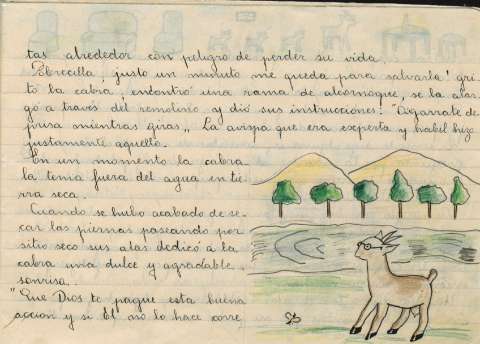 tas alrededor con peligro de perder su vida.
Pobrecilla, justo un minuto me queda para salvarla! gri
tó la cabra, encontró una rama de alcornoque, se la alar
gó a través del remolino y dió sus instrucciones: "Agarrate de
prisa mientras giras„ La avispa que era experta y habil hizo
justamente aquello.
En un momento la cabra
la tenia fuera del agua en tie
rra seca.
Cuando se hubo acabado de se-
car las piernas paseando por
sitio seco sus alas dedicó a la
cabra una dulce y agradable
sonrisa.
"Que Dios te pague esta buena
acción y si El no lo hace corre